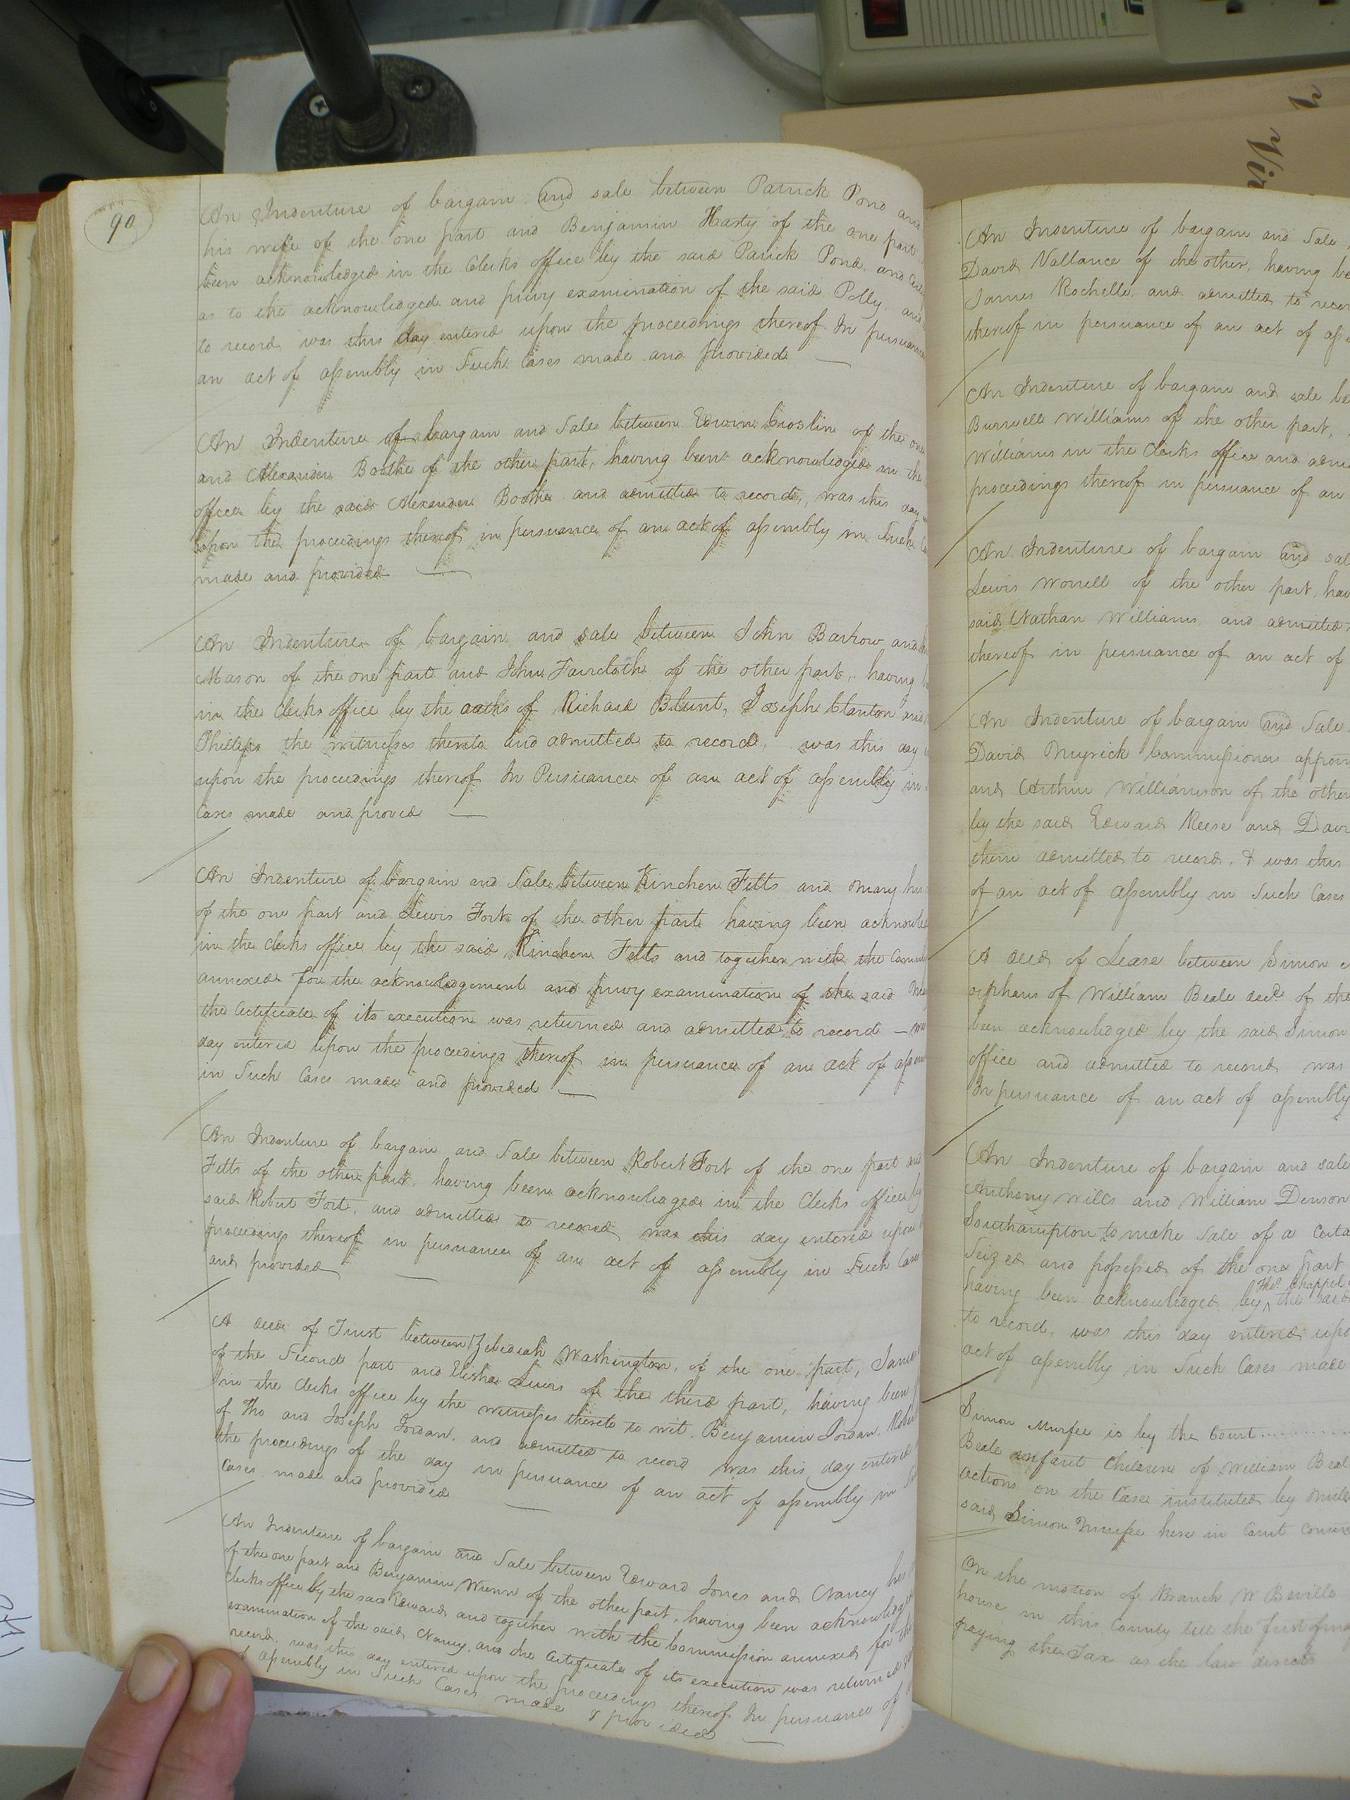 90
An Indenture of bargain and sale between Patrick Pond and
his wife of the one part and Benjamin Harty of the one part
been acknowledged in the Clerks office by the said Patrick Pond and
as to the acknowledged and privy examination of the said Polly and
to record was this day entered upon the proceedings thereof In persuance
an act of assembly in Such Cases made and provided
An Indenture of bargain and Sale between Edwin Croslin of the one
and Alexander Boothe of the other part, having been acknowledged in the
office by the said Alexander Boothe and admitted to record, was this day
upon the proceedings thereof in persuance of an act of assembly in Such
made and provided
An Indenture of bargain and sale between John Barkow and
Mason of the one part and John Faircloth of the other part, having
in the Clerks office by the oaths of Richard Blunt, Joseph Clanton and
Phillips the witnesses thereto and admitted to record, was this day
upon the proceedings thereof In Persuance of an act of assembly in
Cases made and provied
An Indenture of bargain and Sale between Kinchen Felts and Mary his
of the one part and Lewis Fort of the other part having been acknowled
in the Clerks office by the said Kinchen Felts and together with the Comm
annexed for the acknowledgement and privy examination of the said
the Certificate of its execution was returned and admitted to record –
day entered upon the proceedings thereof in persuance of an act of assem
in Such Cases made and provided
An Indenture of bargain and Sale between Robert Fort of the one part and
Felts of the other part, having been acknowledged in the Clerks office by
said Robert Fort, and admitted to record was this day entered upon
proceedings thereof in persuance of an act of assembly in Such Cases
and provided
A deed of Trust between Zebediah Washington, of the one part, James
of the Second part and Elisha Lewis of the third part, having been
In the Clerks office by the witnesses thereto to wit. Benjamin Jordan, Robert
of Tho and Joseph Jordan, and admitted to record was this day entered
the proceedings of the day in persuance of an act of assembly in
Cases made and provided
An Indenture of bargain and Sale between Edward Jones and Nancy his
of the one part and Benjamin Wrenn of the other part, having been acknowledged
Clerks office by the said Edward and together with the Commission annexed for the
examination of the said Nancy, and the Certificate of its execution was returned
record was this day entered upon the proceedings thereof In persuance of
of assembly in Such Cases made & provided
An Indenture of bargain and Sale
David Vallance of the other, having be
James Rochelle, and admitted to recor
thereof in persuance of an act of asse
An Indenture of bargain and sale be
Burwell Williams of the other part,
Williams in the Clerks office and adm
proceedings thereof in persuance of an
An Indenture of bargain and sal
Lewis Worrell of the other part, hav
said Nathan Williams and admitted
thereof in persuance of an act of
An Indenture of bargain and Sale
David Myrick Commissioners appoin
and Arthur Williamson of the other
by the said Edward Reese and Davi
them admitted to record, & was this
of an act of assembly in Such Cases
A deed of Lease between Simon
orphans of William Beale decd of the
been acknowledged by the said Simon
office and admitted to record was
In persuance of an act of assembly
An Indenture of bargain and sale
Anthony Wills and William Denson
Southampton to make Sale of a Certa
Seized and possessed of the one part
having been acknowledged by the said
Thos Chappel
to record, was this day entered upo
act of assembly in Such Cases made
Simon Murfee is by the Court
Beale infant Children of William Beal
actions on the Case instituted by
said Simon Murfee here in Court
On the motion of Branch W Beville
house in this County till the first of
paying the Tax as the law directs
Vir